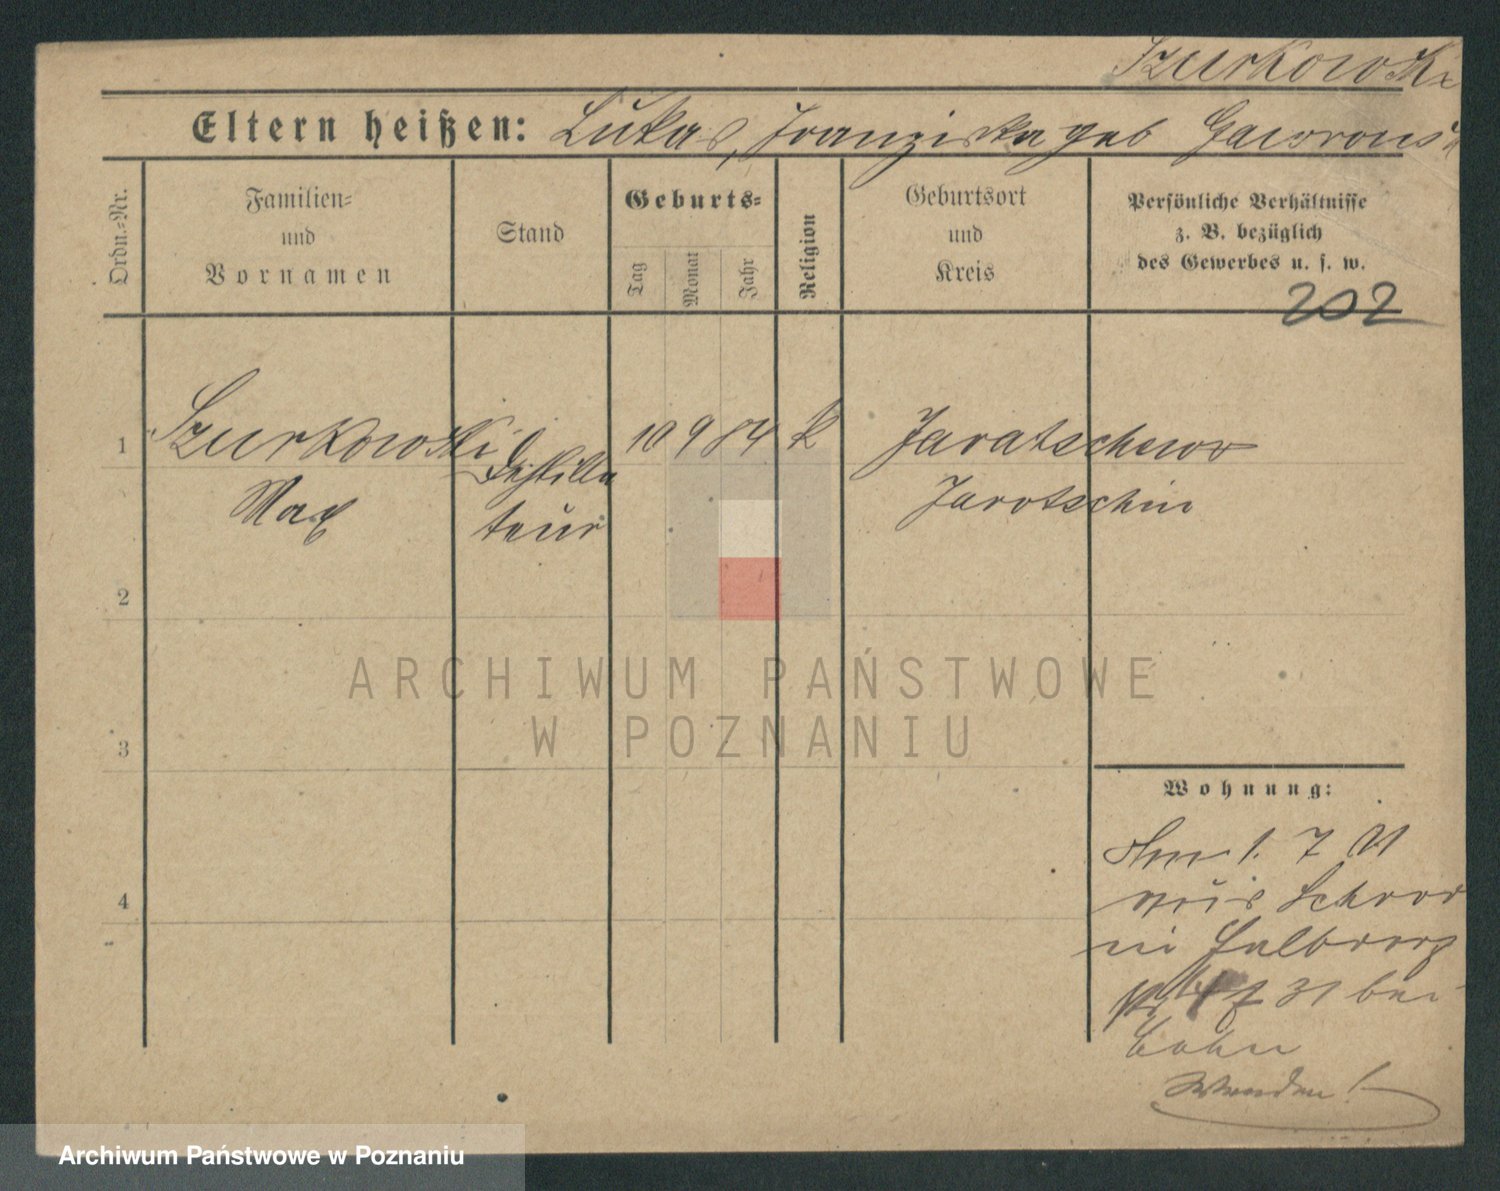 Szurkowski
Eltern heißen: Lukas, Franziska geb Gawrons
Ordn.-Nr.
Familien-
und
Vornamen
Stand
Geburts-
Tag
Monat
Jahr
Religion
Geburtsort
und
Kreis
Persönliche Verhältnisse
z. B. bezüglich
des Gewerbes u. s. w.
202
1 Szurkowski Destilla 10 9 84 k Jaratschewo
Max teur Jarotschin
2
3
4
ARCHIWUM PAŃSTWOWE
W POZNANIU
Wohnung:
1. 7 01
aus
in Halbdorf
str 31 bei
Cohn
Wenden!
Archiwum Państwowe w Poznaniu